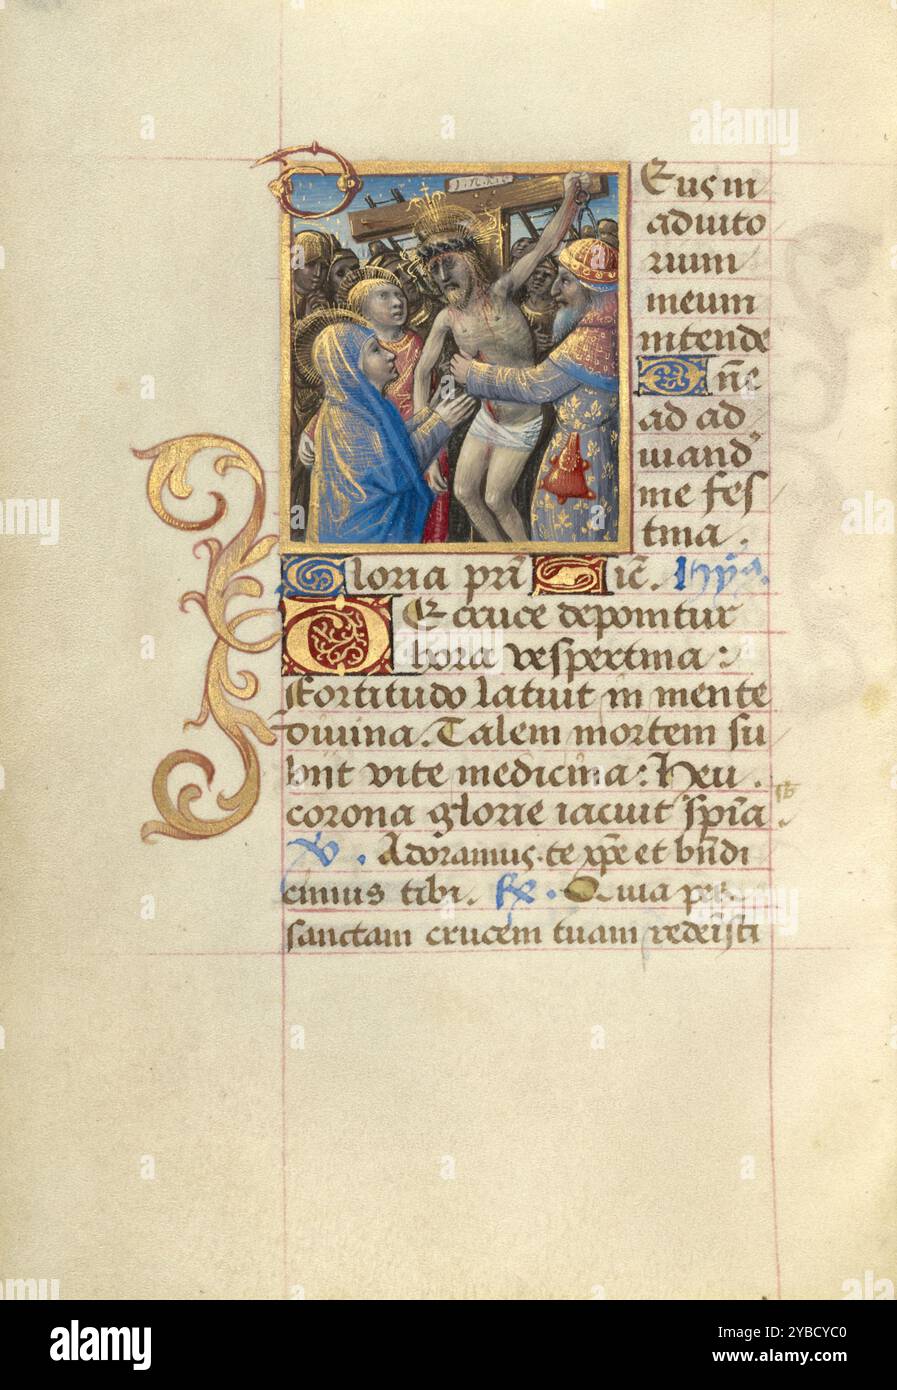 I·N·R·I
Deus in
adiuto
rium
meum
intende
Dñe
ad ad
iuand᾽
me fes
tina .
Gloria pri͂ Sic̃. hỹ᾽.
DE cruce deponitur
hora vespertina :
Fortitudo latuit in mente
diuina . Talem mortem su
biit vite medicina : Heu .
corona glorie iacuit sp̃ia .
V̷ . Adoramus te xp̃e et bñdi
cimus tibi . R̷ . Quia per
sanctam crucem tuam redemisti
alamy
Image ID: 2YBCYC0
www.alamy.com